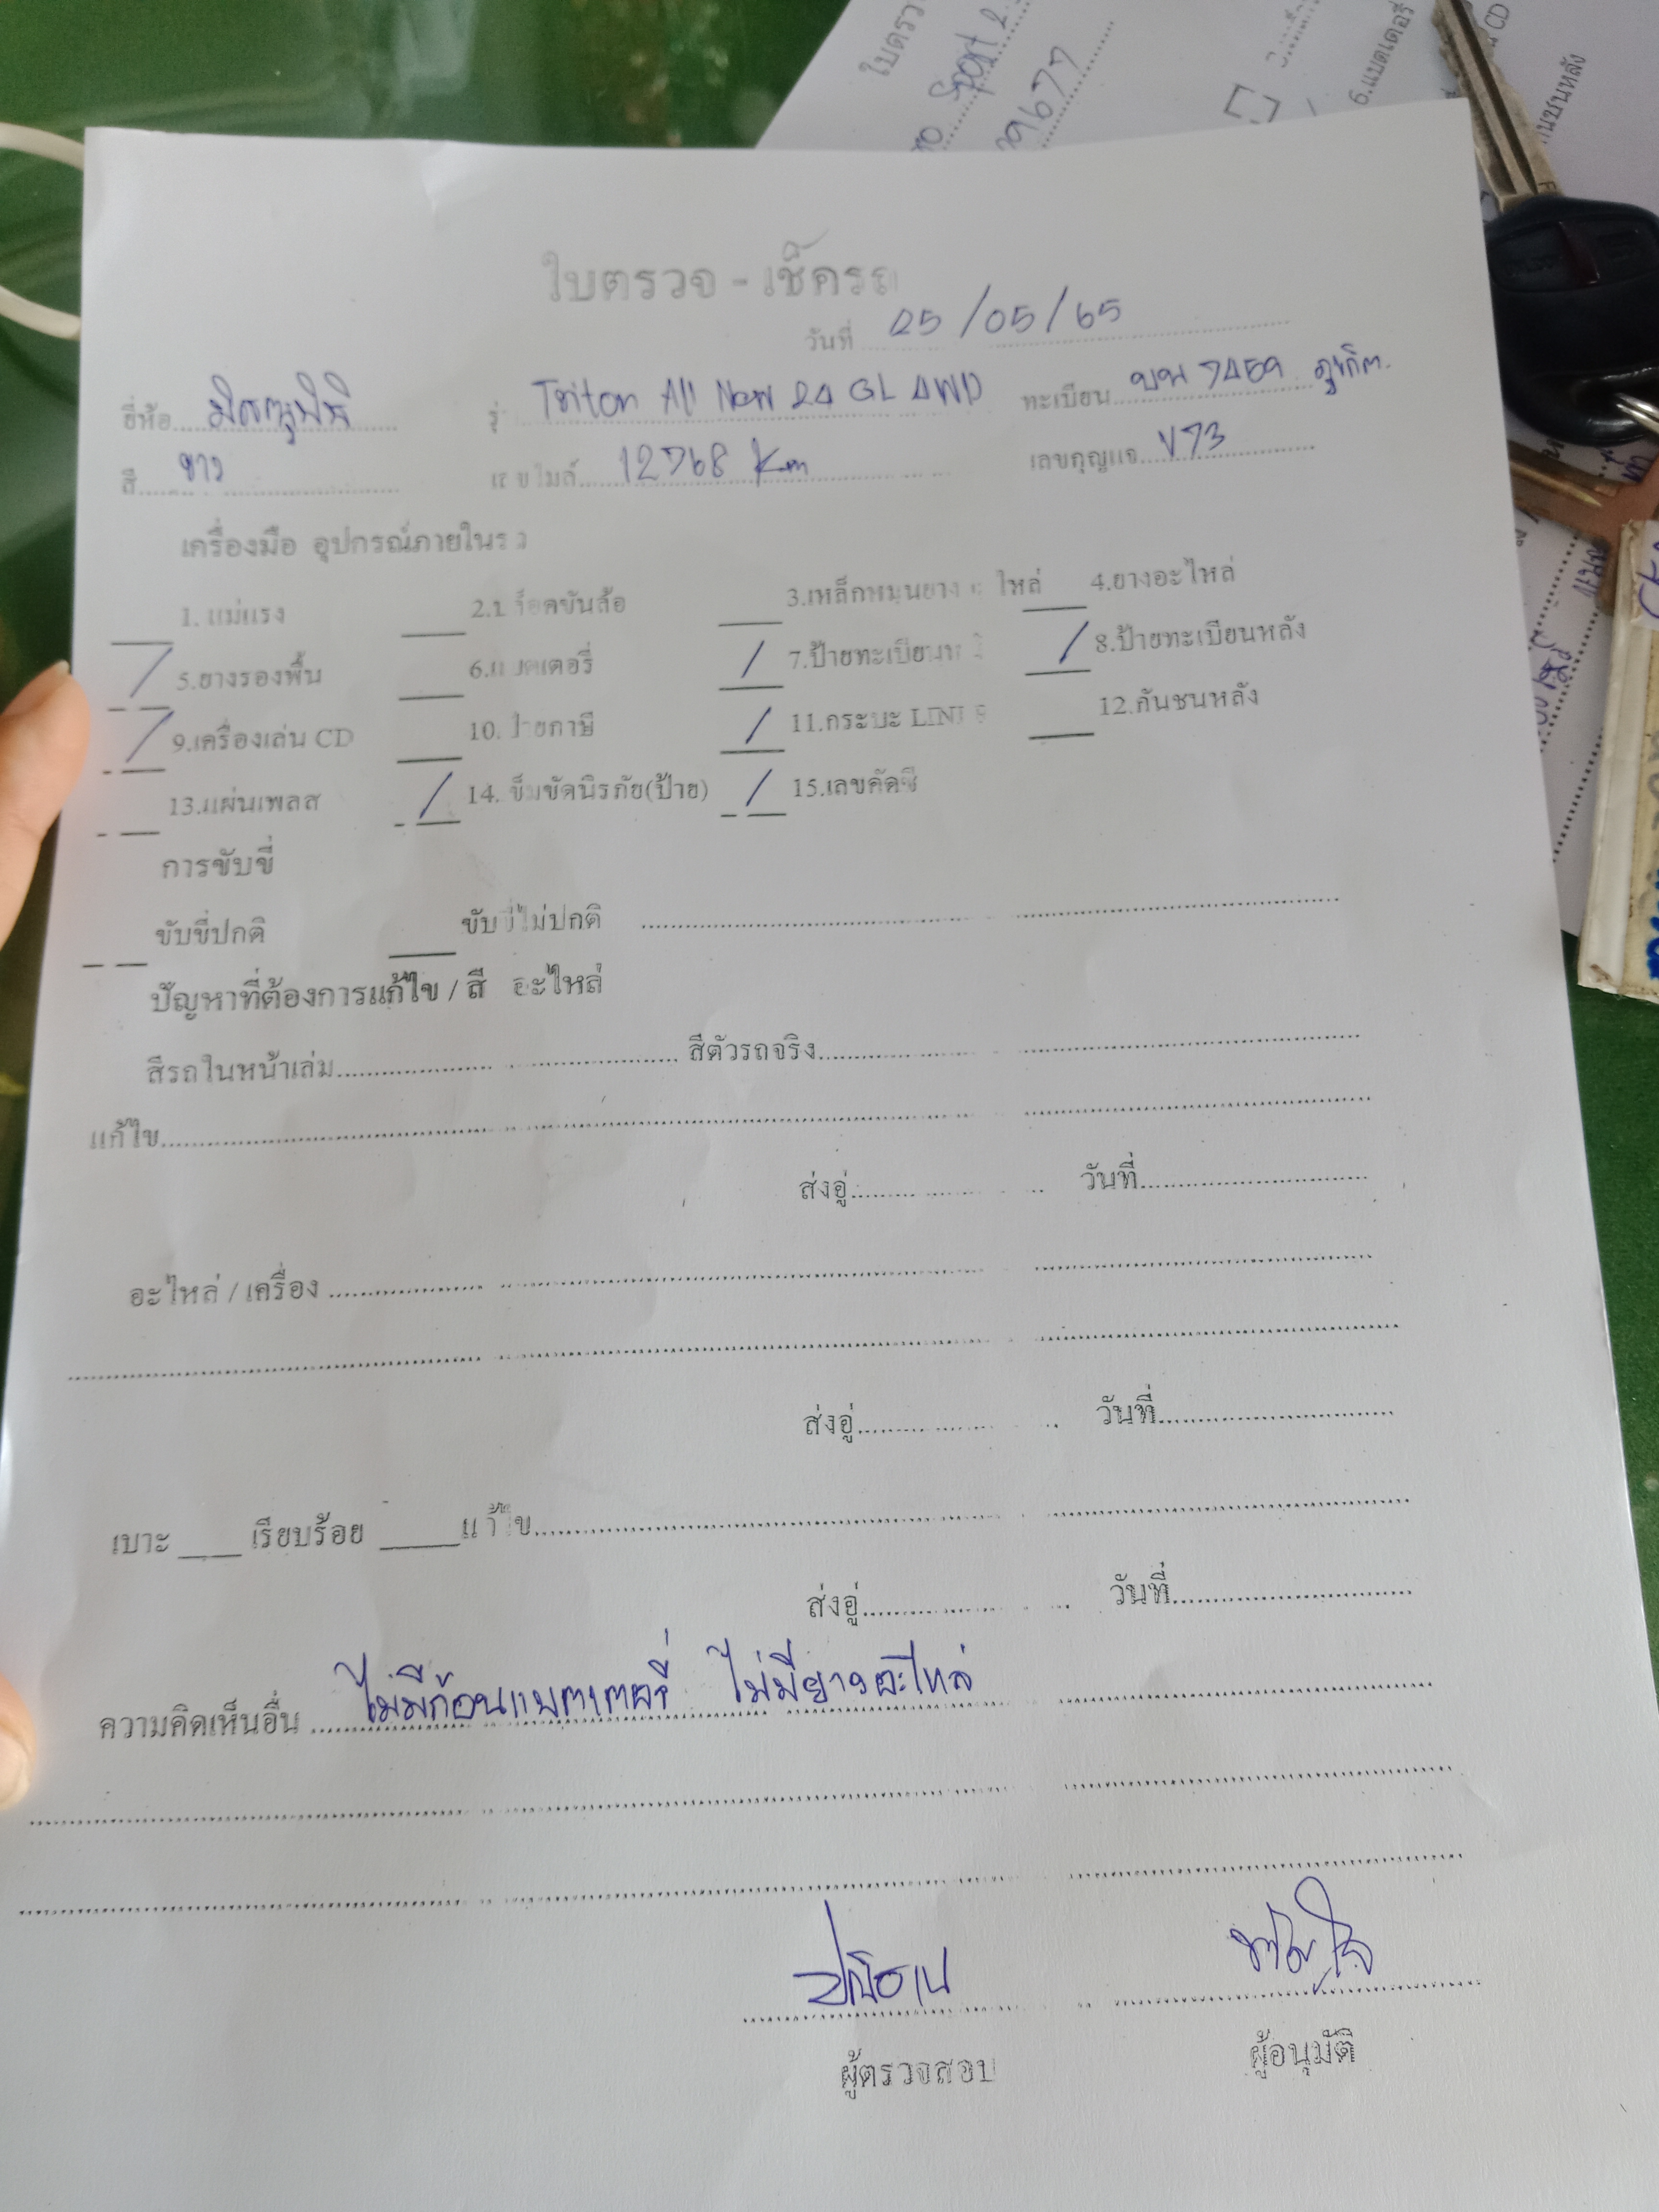 ใบตรวจ - เช็ครถ
วันที่ 25/05/65
ยี่ห้อ มิตซูบิชิ รุ่ Triton All New 2.4 GL 4WD ทะเบียน 7459 ภูเก็ต
สี ขาว เลขไมล์ 12768 Km เลขกุญแจ V73
เครื่องมือ อุปกรณ์ภายในร
1. แม่แรง 2. ล็อคขันล้อ 3.เหล็กหมุนยาง อะไหล่ 4.ยางอะไหล่
/ 5.ยางรองพื้น 6.แบตเตอรี่ / 7.ป้ายทะเบียนห / 8.ป้ายทะเบียนหลัง
/ 9.เครื่องเล่น CD 10. ป้ายภาษี / 11.กระบะ LINER 12.กันชนหลัง
13.แผ่นเพลส / 14. เข็มขัดนิรภัย(ป้าย) / 15.เลขคัดซี
การขับขี่
ขับขี่ปกติ ขับขี่ไม่ปกติ
ปัญหาที่ต้องการแก้ไข / สี อะไหล่
สีรถในหน้าเล่ม สีตัวรถจริง
แก้ไข
ส่งอู่ วันที่
อะไหล่ / เครื่อง
ส่งอู่ วันที่
เบาะ ____ เรียบร้อย ____ แก้ไข
ส่งอู่ วันที่
ความคิดเห็นอื่น ไม่มีก้อนแบตเตอรี่ ไม่มียางอะไหล่
ผู้ตรวจสอบ ผู้อนุมัติ
ใบตรว
Sport 2
29677
6.แบตเตอรี่
CD
นชนหลัง